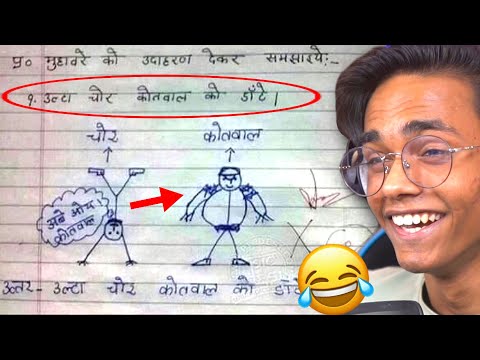 प्र० मुहावरे को उदाहरण देकर समझाइये:-
१. उल्टा चोर कोतवाल को डाँटे।
चोर कोतवाल
अबे ओय
कोतवाल
उत्तर- उल्टा चोर कोतवाल को डाँटे